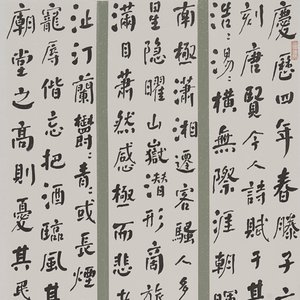 慶歷四年春滕子
刻唐賢今人詩賦于其
浩〻湯〻橫無際涯朝
南極瀟湘遷客騷人多
星隱曜山嶽潛形商旅
滿目蕭然感極而悲
沚汀蘭鬱〻青〻或長煙
寵辱偕忘把酒臨風其
廟堂之高則憂其民